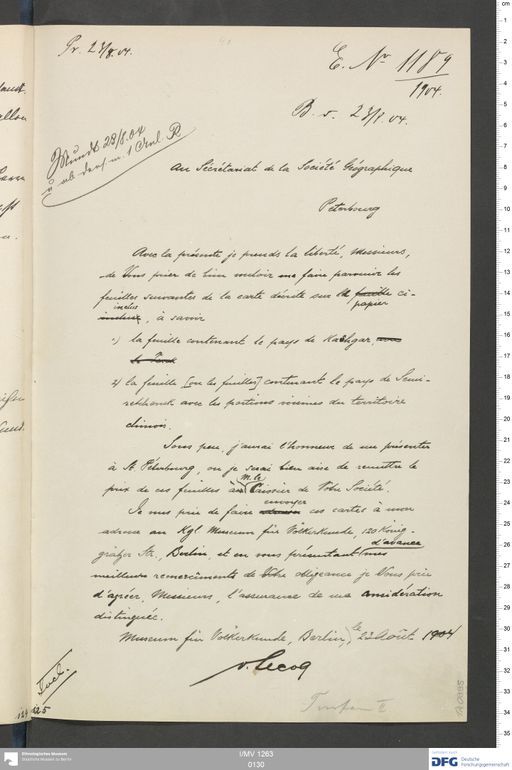 Pr. 23/8.04.
E. No 1189
1904.
B. d. 23/8.04.
Mundt 28/8.04
ab durch m. 1 Anl. R
Au Sécrétariat de la Société Géographique
Petersbourg
Avec la présente je prends la liberté, Messieurs,
de Vous prier de bien vouloir me faire parvenir les
feuilles suivantes de la carte décrite sur papier ci-
inclus, à savoir
1) la feuille contenant le pays de Kachgar,
2) la feuille [ou les feuilles] contenant le pays de Semi-
retchensk avec les portions voisines du territoire
chinois.
Sous peu, j'aurai l'honneur de me présenter
à St. Pétersbourg, ou je serai bien aise de remettre le
prix de ces feuilles à M. le Caissier de Votre Société.
Je vous prie de faire envoyer ces cartes à mon
adresse au Kgl Museum für Völkerkunde, 120 König-
grätzer Str., Berlin, et en vous présentant d'avance mes
meilleurs remercîments de Votre obligeance je Vous prie
d'agréer, Messieurs, l'assurance de ma considération
distinguée.
Museum für Völkerkunde, Berlin, le 23 Août 1904
v. Lecoq
Turfan II
125
Ethnologisches Museum
Staatliche Museen zu Berlin
I/MV 1263
0130
DFG
Deutsche
Forschungsgemeinschaft